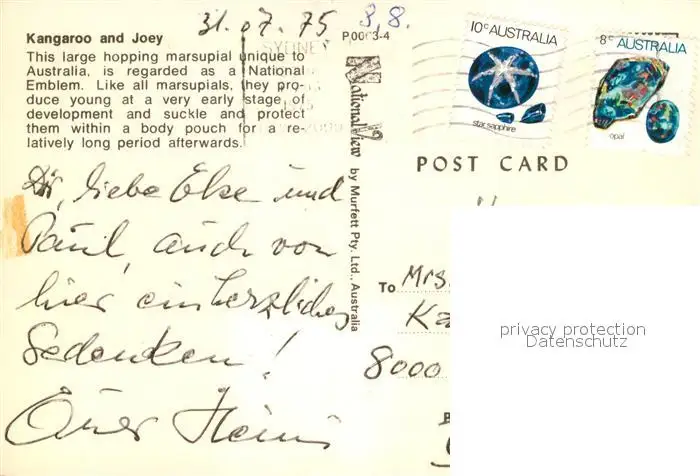 31. 07. 75
3,8.
Kangaroo and Joey
P0063-4
This large hopping marsupial unique to
Australia, is regarded as a National
Emblem. Like all marsupials, they pro-
duce young at a very early stage of
development and suckle and protect
them within a body pouch for a re-
latively long period afterwards.
SYDNEY
10c AUSTRALIA
star sapphire
8c AUSTRALIA
opal
National View
by Murfett Pty. Ltd., Australia
POST CARD
liebe Else und
Paul, auch von
hier ein herzliches
Gedenken!
Euer
To Mrs.
Ka
8000
privacy protection
Datenschutz